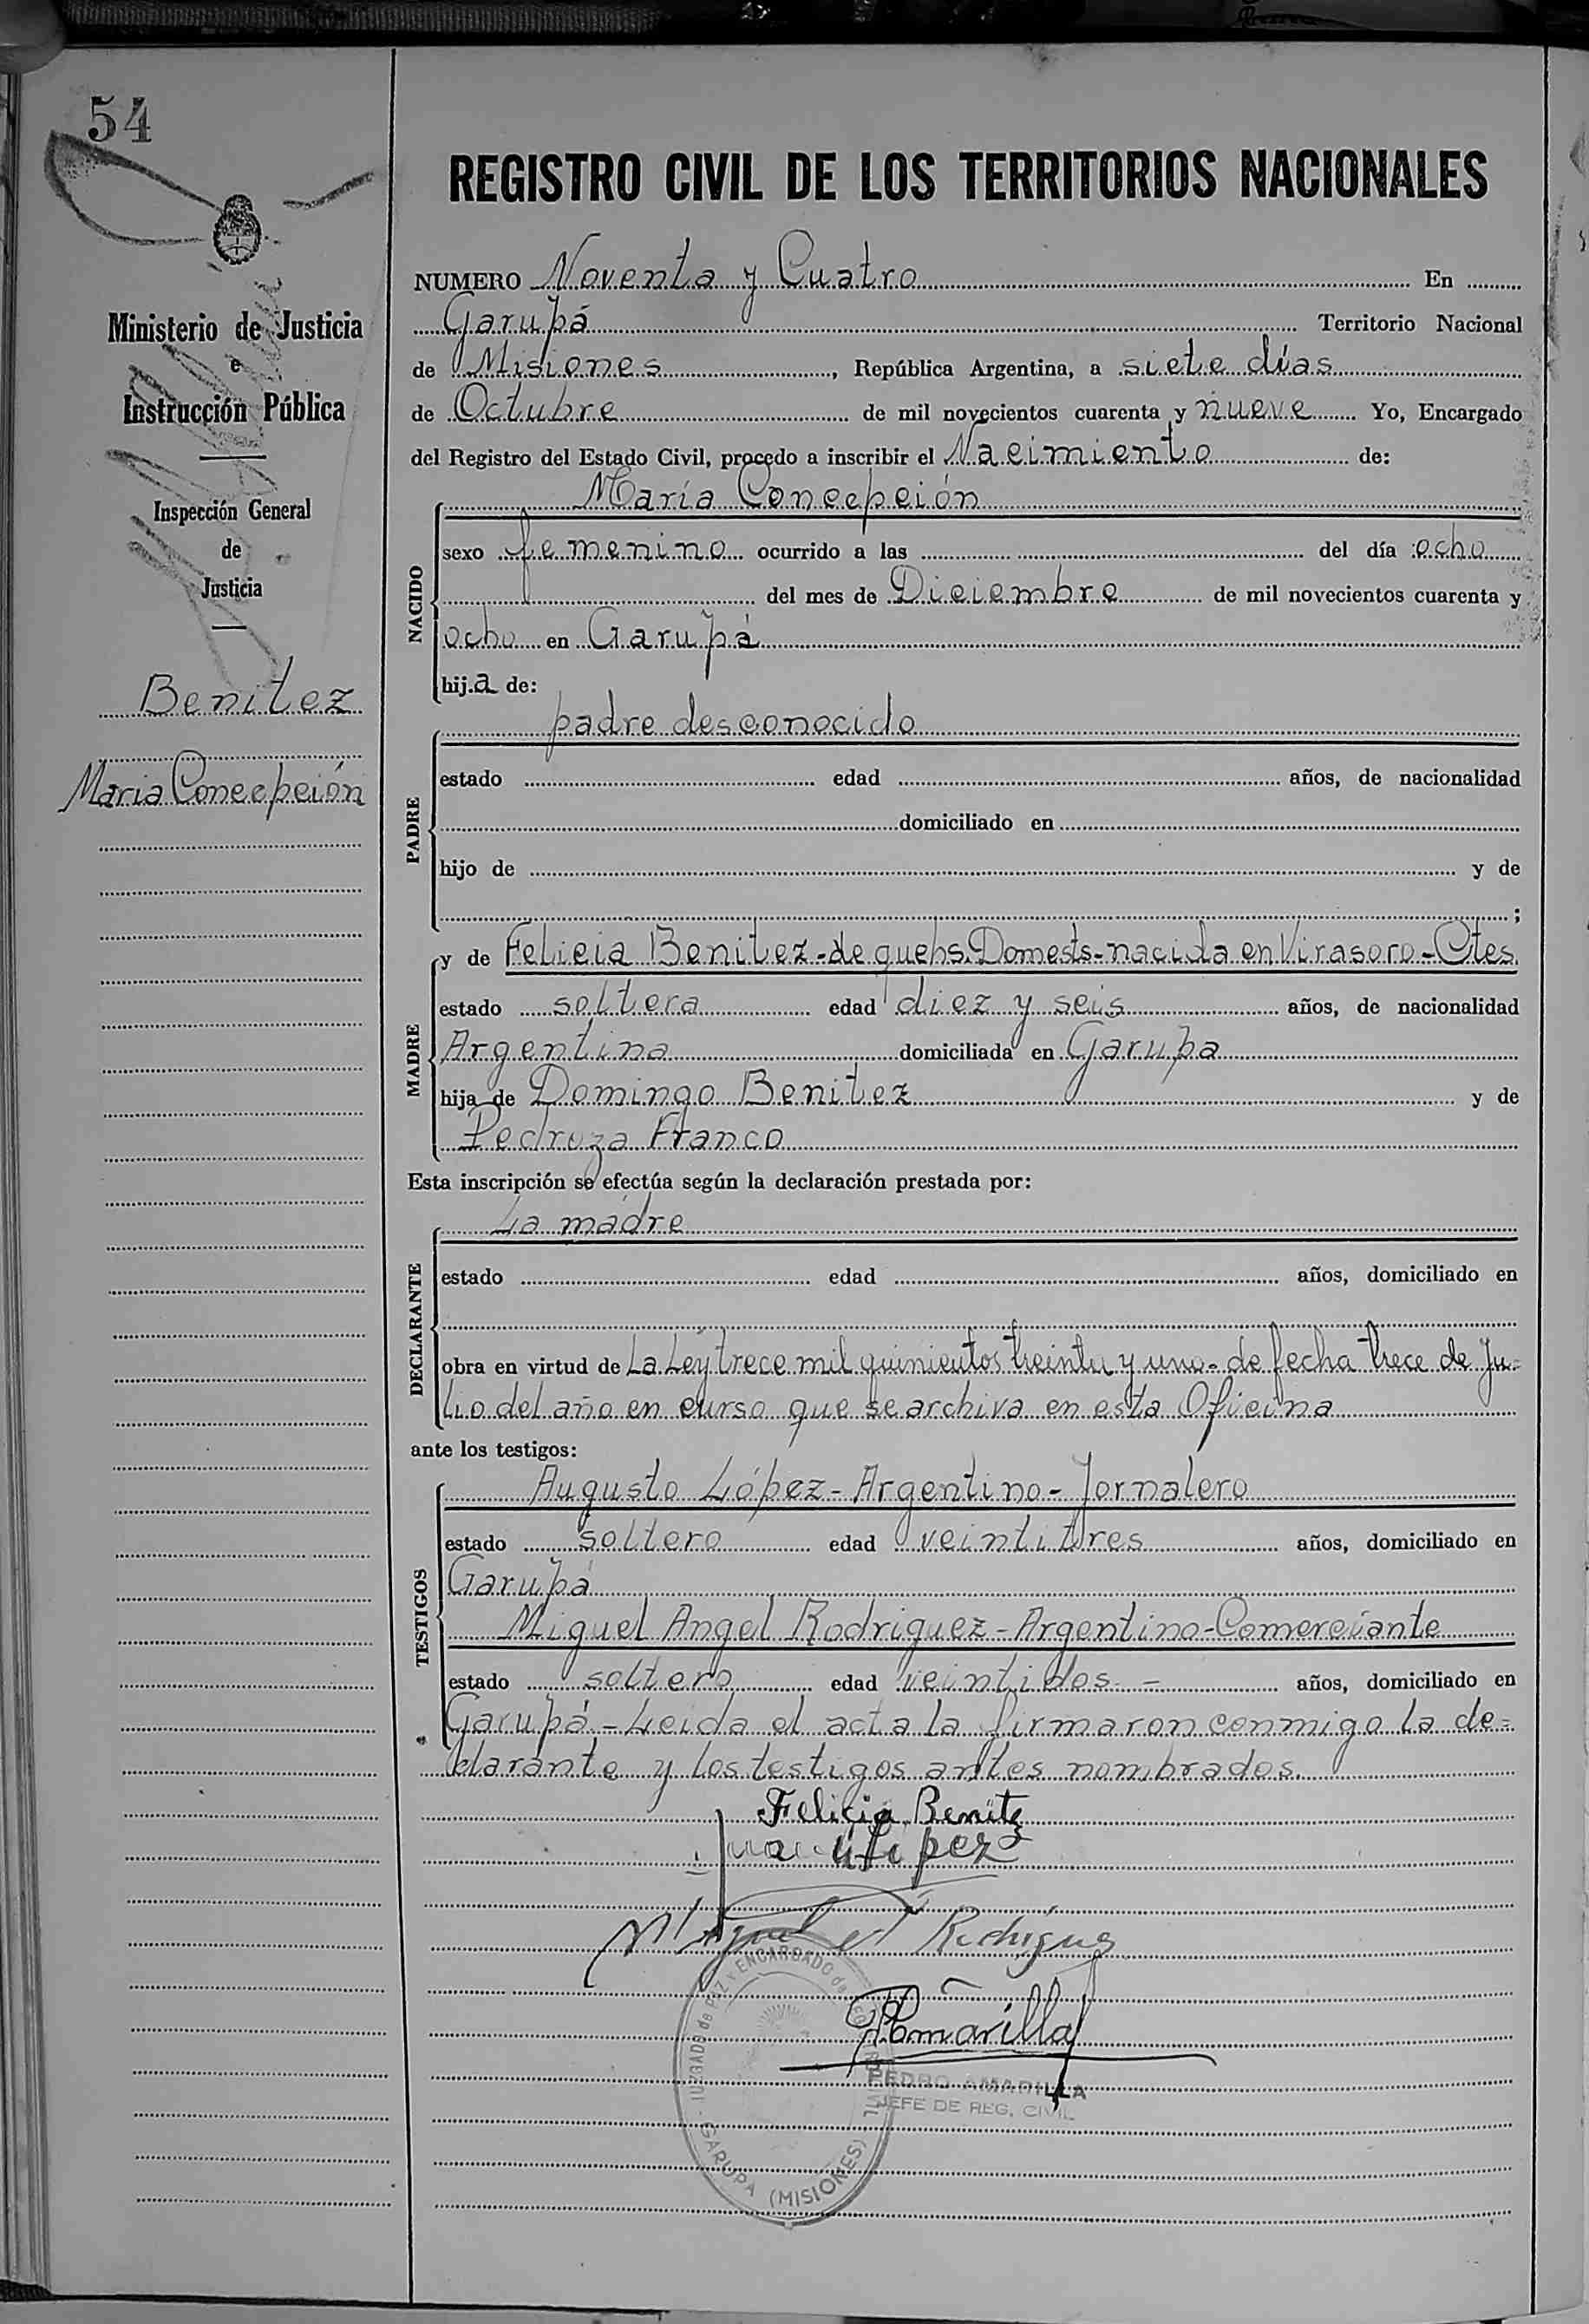 54
REGISTRO CIVIL DE LOS TERRITORIOS NACIONALES
Ministerio de Justicia
e
Instrucción Pública
Inspección General
de
Justicia
Benitez
Maria Concepción
NUMERO Noventa y Cuatro En
Garupá Territorio Nacional
de Misiones, República Argentina, a siete días
de Octubre de mil novecientos cuarenta y nueve Yo, Encargado
del Registro del Estado Civil, procedo a inscribir el Nacimiento de:
María Concepción
NACIDO
sexo femenino ocurrido a las del día ocho
del mes de Diciembre de mil novecientos cuarenta y
ocho en Garupá
hija de:
padre desconocido
PADRE
estado edad años, de nacionalidad
domiciliado en
hijo de y de
;
y de Felicia Benitez-de quehs. Domests-nacida en Virasoro-Ctes.
MADRE
estado soltera edad diez y seis años, de nacionalidad
Argentina domiciliada en Garupa
hija de Domingo Benitez y de
Pedroza Franco
Esta inscripción se efectúa según la declaración prestada por:
La madre
DECLARANTE
estado edad años, domiciliado en
obra en virtud de La Ley trece mil quinientos treinta y uno-de fecha trece de Ju-
lio del año en curso que se archiva en esta Oficina
ante los testigos:
TESTIGOS
Augusto López-Argentino-Jornalero
estado soltero edad veintitres años, domiciliado en
Garupá
Miguel Angel Rodriguez-Argentino-Comerciante
estado soltero edad veintidos - años, domiciliado en
Garupá-Leida el acta la firmaron conmigo la de=
clarante y los testigos antes nombrados.
Felicia Benitz
Miguel A Rodriguez
PAmarilla
PEDRO AMARILLA
JEFE DE REG. CIVIL
JUZGADO de PAZ y ENCARGADO de
GARUPA (MISIONES)